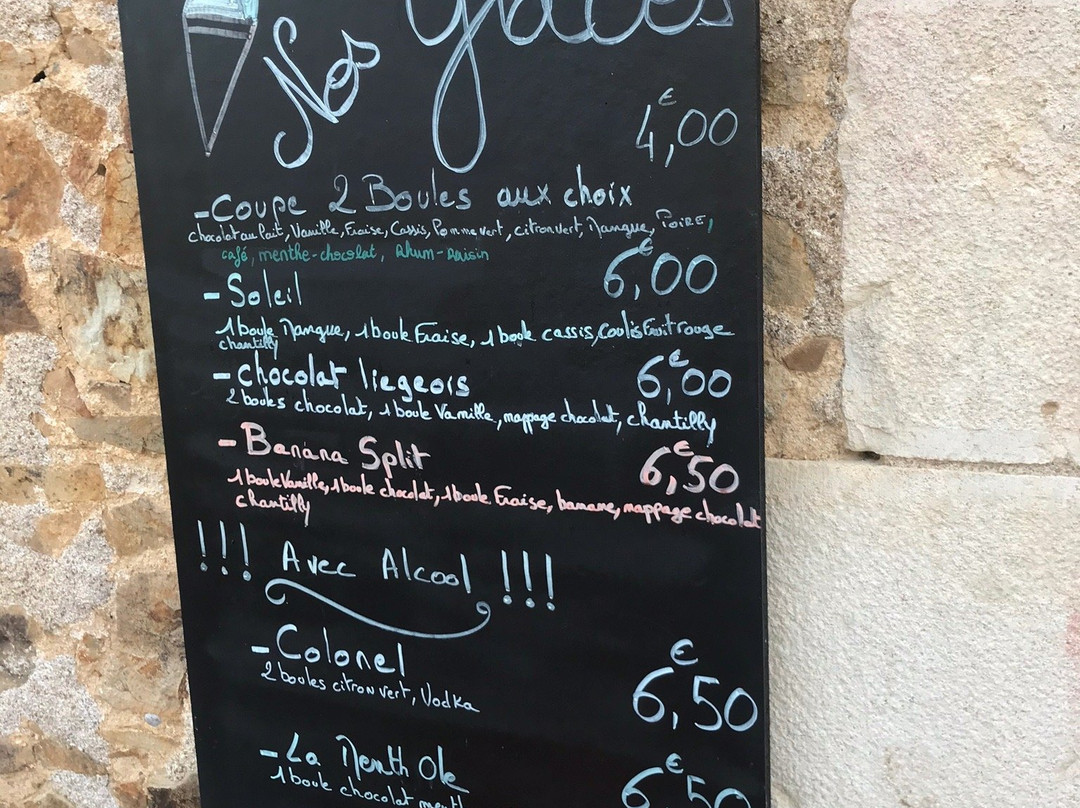 Nos glaces
4,00 €
- Coupe 2 Boules aux choix
chocolat au lait, Vanille, Fraise, Cassis, Pomme vert, citron vert, Mangue, POIRE,
café, menthe-chocolat, Rhum-Raisin
- Soleil 6,00 €
1 boule Mangue, 1 boule Fraise, 1 boule cassis, Coulis Fruit rouge
chantilly
- chocolat liegeois 6,00 €
2 boules chocolat, 1 boule Vanille, nappage chocolat, chantilly
- Banana Split 6,50 €
1 boule Vanille, 1 boule chocolat, 1 boule Fraise, banane, nappage chocolat
chantilly
!!! Avec Alcool !!!
- Colonel 6,50 €
2 boules citron vert, Vodka
- La Menth Ole 6,50 €
1 boule chocolat menth